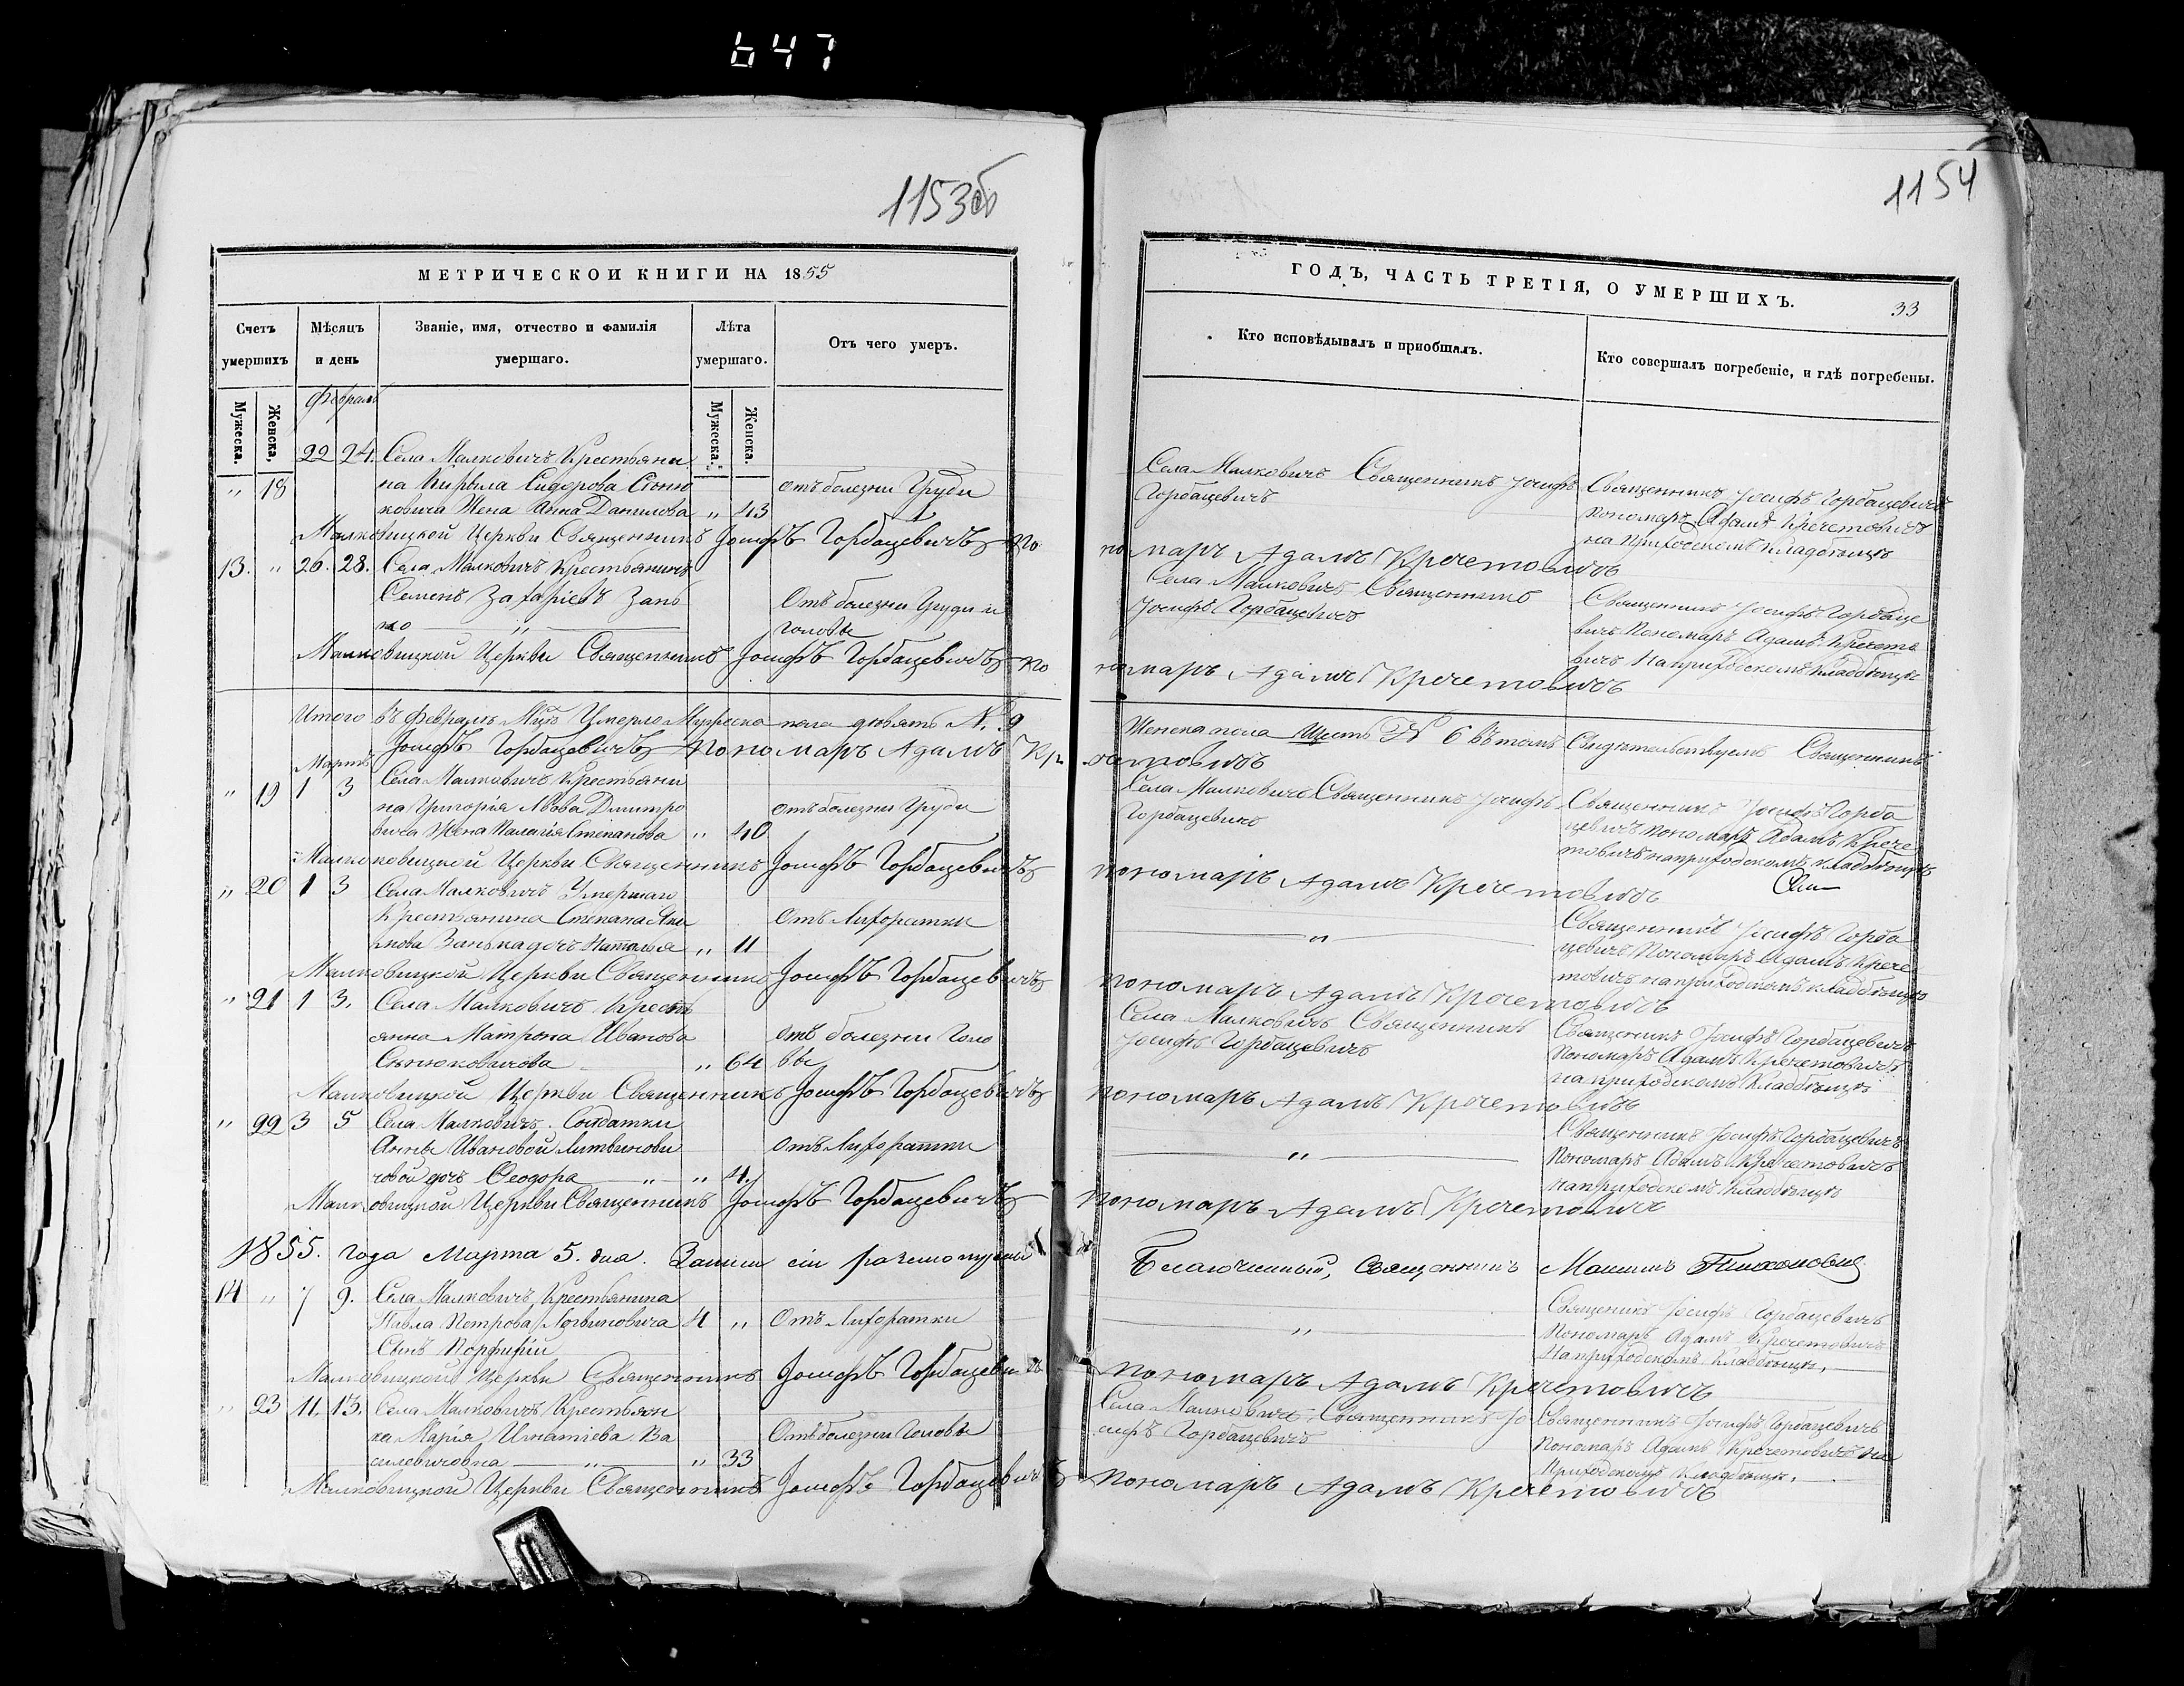 647
1153об
МЕТРИЧЕСКОЙ КНИГИ НА 1855
Счетъ умершихъ
Мѣсяцъ и день
Званіе, имя, отчество и фамилія умершаго.
Лѣта умершаго.
Отъ чего умеръ.
Мужеска.
Женска,
Мужеска.
Женска.
Февраль
22 24. Села Малковичъ Крестьяни
" 18 на Кирыла Сидорова Сѣню отъ болезни Груди
ковича Жена Анна Данилова " 43
Малковицкой Церкви Священникъ Іосифъ Горбацевичъ По
13. " 26. 28. Села Малковичъ Крестьянинъ
Семенъ Захаріевъ Зань Отъ болезни Груди и
ко " головы
Малковицкой Церкви Священникъ Іосифъ Горбацевичъ По
Итого въ Февралѣ Мцѣ Умерло Мужеска пола девять №. 9
Іосифъ Горбацевичъ Пономаръ Адамъ Кр
Мартъ
" 19 1 3 Села Малковичъ Крестьяни
на Григорія Львова Дмитро отъ болезни Груди
вича Жена Палагія Степанова " 40
Малковицкой Церкви Священникъ Іосифъ Горбацевичъ
" 20 1 3 Села Малковичъ Умершаго
Крестьянина Степана Отъ Лихорадки
Занька дочъ Наталья " 11
Малковицкой Церкви Священникъ Іосифъ Горбацевичъ
" 21 1 3. Села Малковичъ Кресть
янка Матрона Иванова отъ болезни Голо
Сѣнюковичова " 64 вы
Малковицкой Церкви Священникъ Іосифъ Горбацевичъ
" 22 3 5 Села Малковичъ. Солдатки
Анны Ивановой Литвинови отъ Лихорадки
човой дочъ Феодора " " 4.
Малковицкой Церкви Священникъ Іосифъ Горбацевичъ
1855. года Марта 5. дня.
14 " 7 9. Села Малковичъ Крестьянина
Павла Петрова Логвиновича 4 " Отъ Лихорадки
Сынъ Порфирій
Малковицкой Церкви Священникъ Іосифъ Горбацевичъ
" 23 11. 13. Села Малковичъ Крестьян
ка Марія Игнатіева Ва Отъ болезни Головы
силевичовна " " 33
Малковицкой Церкви Священникъ Іосифъ Горбацевичъ
1154
ГОДЪ, ЧАСТЬ ТРЕТІЯ, О УМЕРШИХЪ.
33
Кто исповѣдывалъ и пріобщалъ.
Кто совершалъ погребеніе, и гдѣ погребены.
Села Малковичъ Священникъ Іосифъ Священникъ Іосифъ Горбацевичъ
Горбацевичъ Пономаръ Адамъ Кречетовичъ
на Приходскомъ Кладбѣщѣ
номаръ Адамъ Кречетовичъ
Села Малковичъ Священникъ Священникъ Іосифъ Горбаце
Іосифъ Горбацевичъ вичъ Пономаръ Адамъ Кречето
вичъ На приходскомъ Кладбѣщѣ
номаръ Адамъ Кречетовичъ
Женска пола Шесть № 6 въ томъ Свидѣтельствуемъ Священникъ
Села Малковичъ Священникъ Іосифъ Священникъ Іосифъ Горба
Горбацевичъ цевичъ Пономаръ Адамъ Крече
товичъ на приходскомъ кладбѣщѣ
Пономаръ Адамъ Кречетовичъ
" Священникъ Іосифъ Горба
цевичъ Пономаръ Адамъ Крече
товичъ на приходскомъ кладбѣщѣ
Пономаръ Адамъ Кречетовичъ
Села Малковичъ Священникъ Священникъ Іосифъ Горбацевичъ
Іосифъ Горбацевичъ Пономаръ Адамъ Кречетовичъ
на приходскомъ Кладбѣщѣ
Пономаръ Адамъ Кречетовичъ
Священникъ Іосифъ Горбацевичъ
" Пономаръ Адамъ Кречетовичъ
на приходскомъ Кладбѣщѣ
Пономаръ Адамъ Кречетовичъ
Благочинный, Священникъ
Священникъ Іосифъ Горбацевичъ
" Пономаръ Адамъ Кречетовичъ
На приходскомъ Кладбѣщѣ.
Пономаръ Адамъ Кречетовичъ
Села Малковичъ Священникъ Іо Священникъ Іосифъ Горбацевичъ
сифъ Горбацевичъ Пономаръ Адамъ Кречетовичъ на
Приходскомъ Кладбѣщѣ.
Пономаръ Адамъ Кречетовичъ